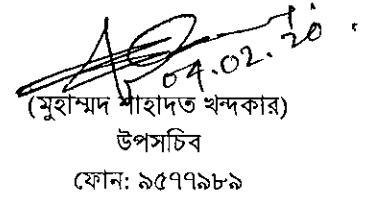 04.02.20
(মুহাম্মদ শাহাদত খন্দকার)
উপসচিব
ফোন: ৯৫৭৭৯৮৯